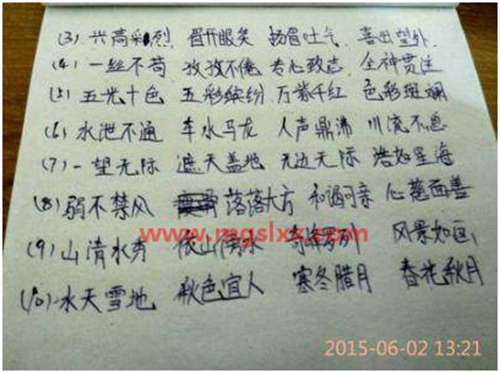 (3) 兴高彩烈 眉开眼笑 扬眉吐气 喜出望外
(4) 一丝不苟 孜孜不倦 专心致志 全神贯注
(5) 五光十色 五彩缤纷 万紫千红 色彩斑斓
(6) 水泄不通 车水马龙 人声鼎沸 川流不息
(7) 一望无际 遮天盖地 无边无际 浩如星海
(8) 弱不禁风 落落大方 和谒可亲 心慈面善
www.mgslxx.com
(9) 山清水秀 依山傍水 奇峰罗列 风景如画
(10) 水天雪地 秋色宜人 寒冬腊月 春花秋月
2015-06-02 13:21